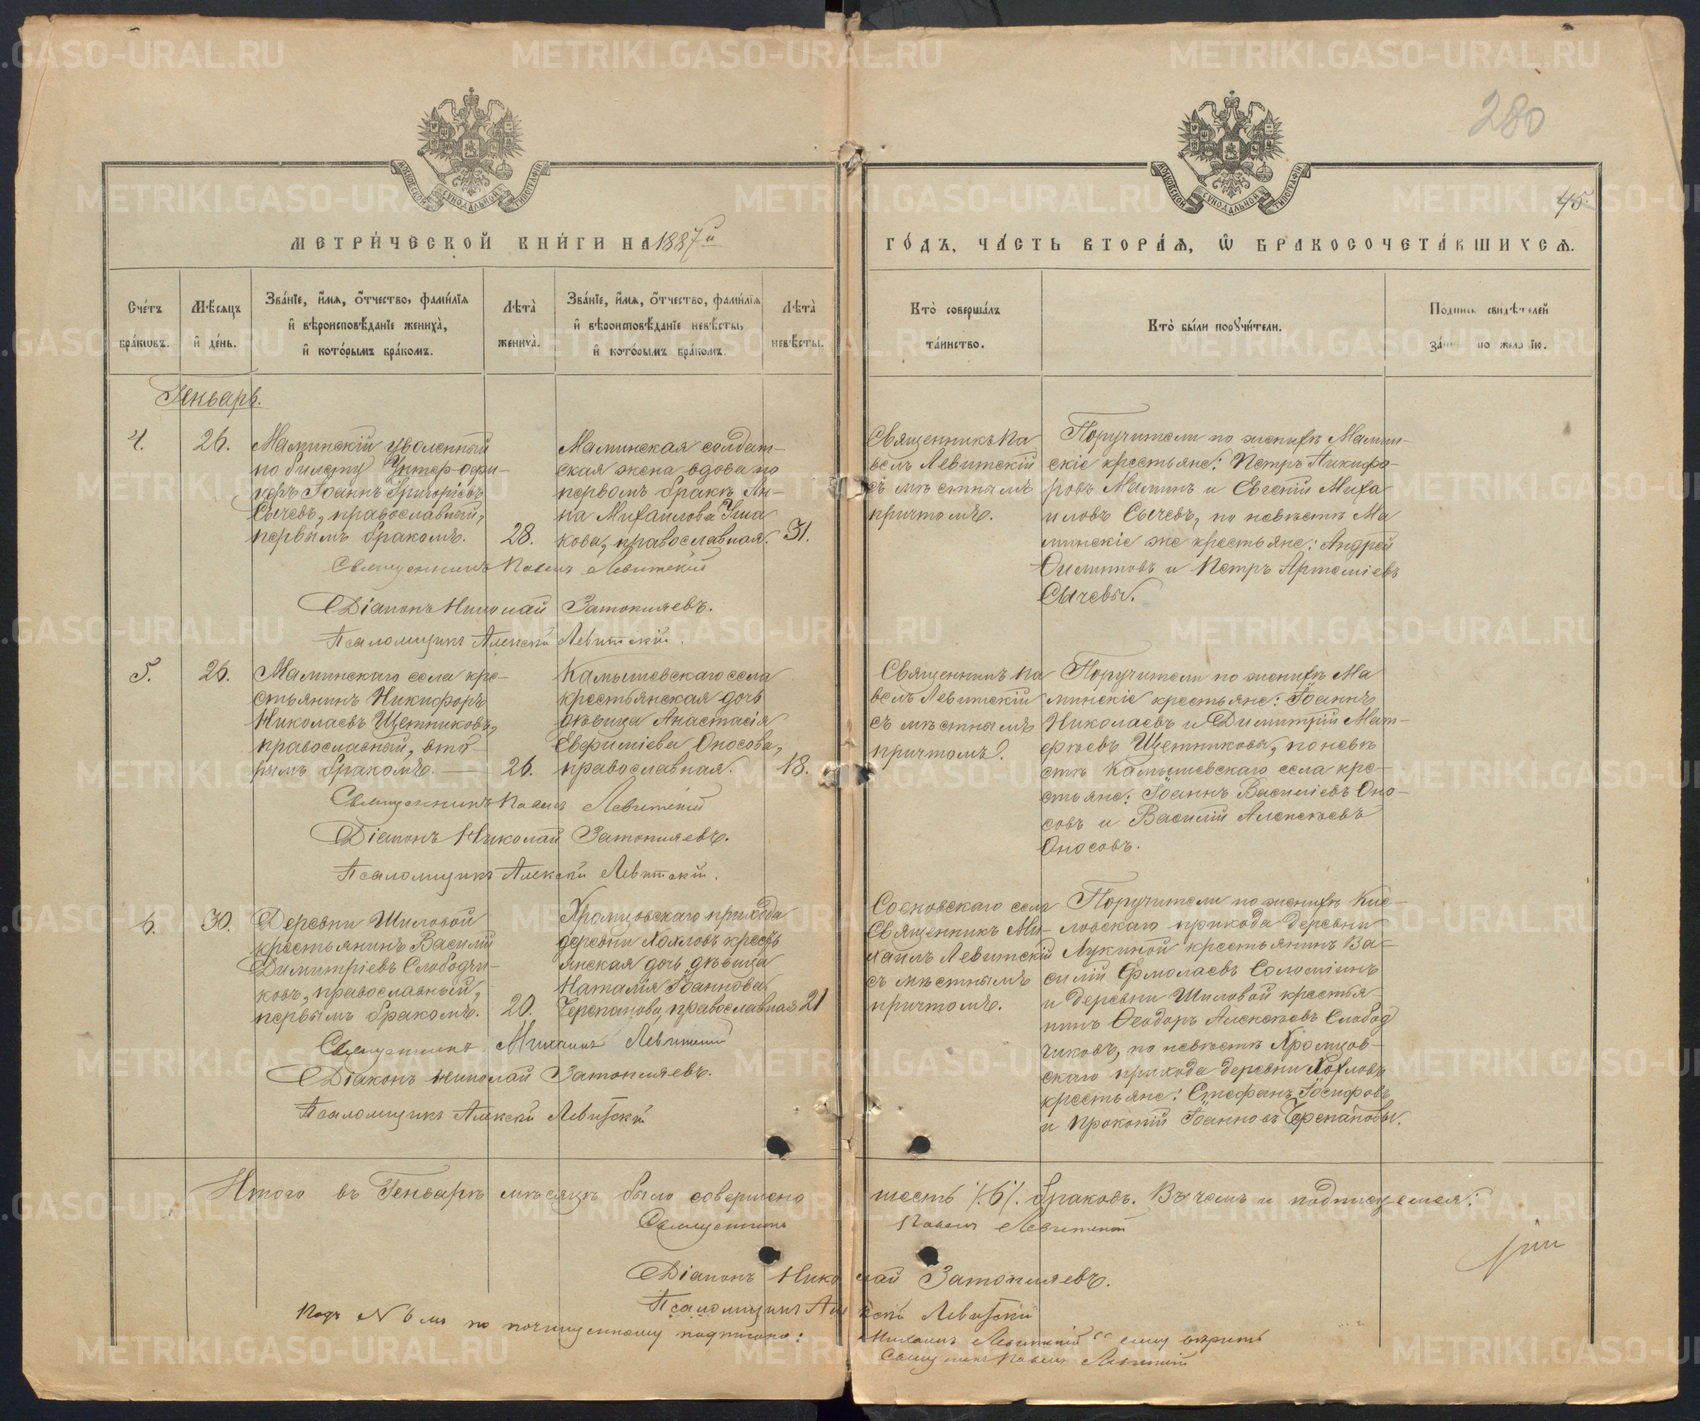 280
45.
МЕТРИЧЕСКОЙ КНИГИ НА 1887й
ГОДЪ, ЧАСТЬ ВТОРАЯ, Ѡ БРАКОСОЧЕТАВШИХСЯ.
Счетъ браковъ.
Мѣсяцъ и день.
Званіе, имя, отчество, фамилія
и вѣроисповѣданіе жениха,
и которымъ бракомъ.
Лѣта жениха.
Званіе, имя, отчество, фамилія
и вѣроисповѣданіе невѣсты,
и которымъ бракомъ.
Лѣта невѣсты.
Кто совершалъ
таинство.
Кто были поручители.
Подпись свидѣтелей
по желанію.
Геньварь.
4.
26.
Маминскій уволенный
по билету Унтер-офи-
церъ Іоаннъ Григоріевъ
Сычевъ, православный,
первымъ бракомъ.
28.
Маминская солдат-
ская жена вдова по
первомъ бракѣ Ан-
на Михайлова Уша
кова, православная.
31.
Священникъ Па
велъ Левитскій
съ мѣстнымъ
причтомъ.
Поручители по женихѣ Мамин-
скіе крестьяне: Петръ Никифо-
ровъ Маминъ и Евгеній Миха
иловъ Сычевъ, по невѣстѣ Ма
минскіе же крестьяне: Андрей
Филипповъ и Петръ Артеміевъ
Сычевы.
Священникъ Павелъ Левитскій
Діаконъ Николай Затопляевъ.
Псаломщикъ Алексѣй Левитскій.
5.
26.
Маминскаго села кре-
стьянинъ Никифоръ
Николаевъ Щетниковъ,
православный, вто-
рымъ бракомъ.
26.
Камышевскаго села
крестьянская дочь
дѣвица Анастасія
Евфиміева Оносова,
православная.
18.
Священникъ Па
велъ Левитскій
съ мѣстнымъ
причтомъ.
Поручители по женихѣ Ма
минскіе крестьяне: Іоаннъ
Николаевъ и Димитрій Мат-
фѣевъ Щетниковы, по невѣ
стѣ Камышевскаго села кре-
стьяне: Іоаннъ Василіевъ Оно-
совъ и Василій Алексѣевъ
Оносовъ.
Священникъ Павелъ Левитскій
Діаконъ Николай Затопляевъ.
Псаломщикъ Алексѣй Левитскій.
6.
30.
Деревни Шиловой
крестьянинъ Василій
Димитріевъ Слободчи-
ковъ, православный,
первымъ бракомъ.
20.
Хромцовскаго прихода
деревни Хохловъ кресть
янская дочь дѣвица
Наталія Іоаннова
Черепанова, православная
21
Сосновскаго села
Священникъ Ми-
хаилъ Левитскій
съ мѣстнымъ
причтомъ.
Поручители по женихѣ Кис-
ловскаго прихода деревни
Лукиной крестьянинъ Ва-
силій Ермолаевъ Соломеинъ
и деревни Шиловой крестья
нинъ Ѳеодоръ Алексѣевъ Слобод
чиковъ, по невѣстѣ Хромцов-
скаго прихода деревни Хохловъ
крестьяне: Стефанъ Іосифовъ
и Прокопій Іоанновъ Черепановы.
Священникъ Михаилъ Левитскій
Діаконъ Николай Затопляевъ.
Псаломщикъ Алексѣй Левитскій
Итого въ Геньварѣ мѣсяцѣ было совершено шесть /.6/. браковъ. Въ чемъ и подписуемся:
Священникъ Павелъ Левитскій
Діаконъ Николай Затопляевъ.
Псаломщикъ Алексѣй Левитскій
Подъ № 6мъ по почищенному подписано: Михаилъ Левитскій сему вѣрить
Священникъ Павелъ Левитскій
METRIKI.GASO-URAL.RU